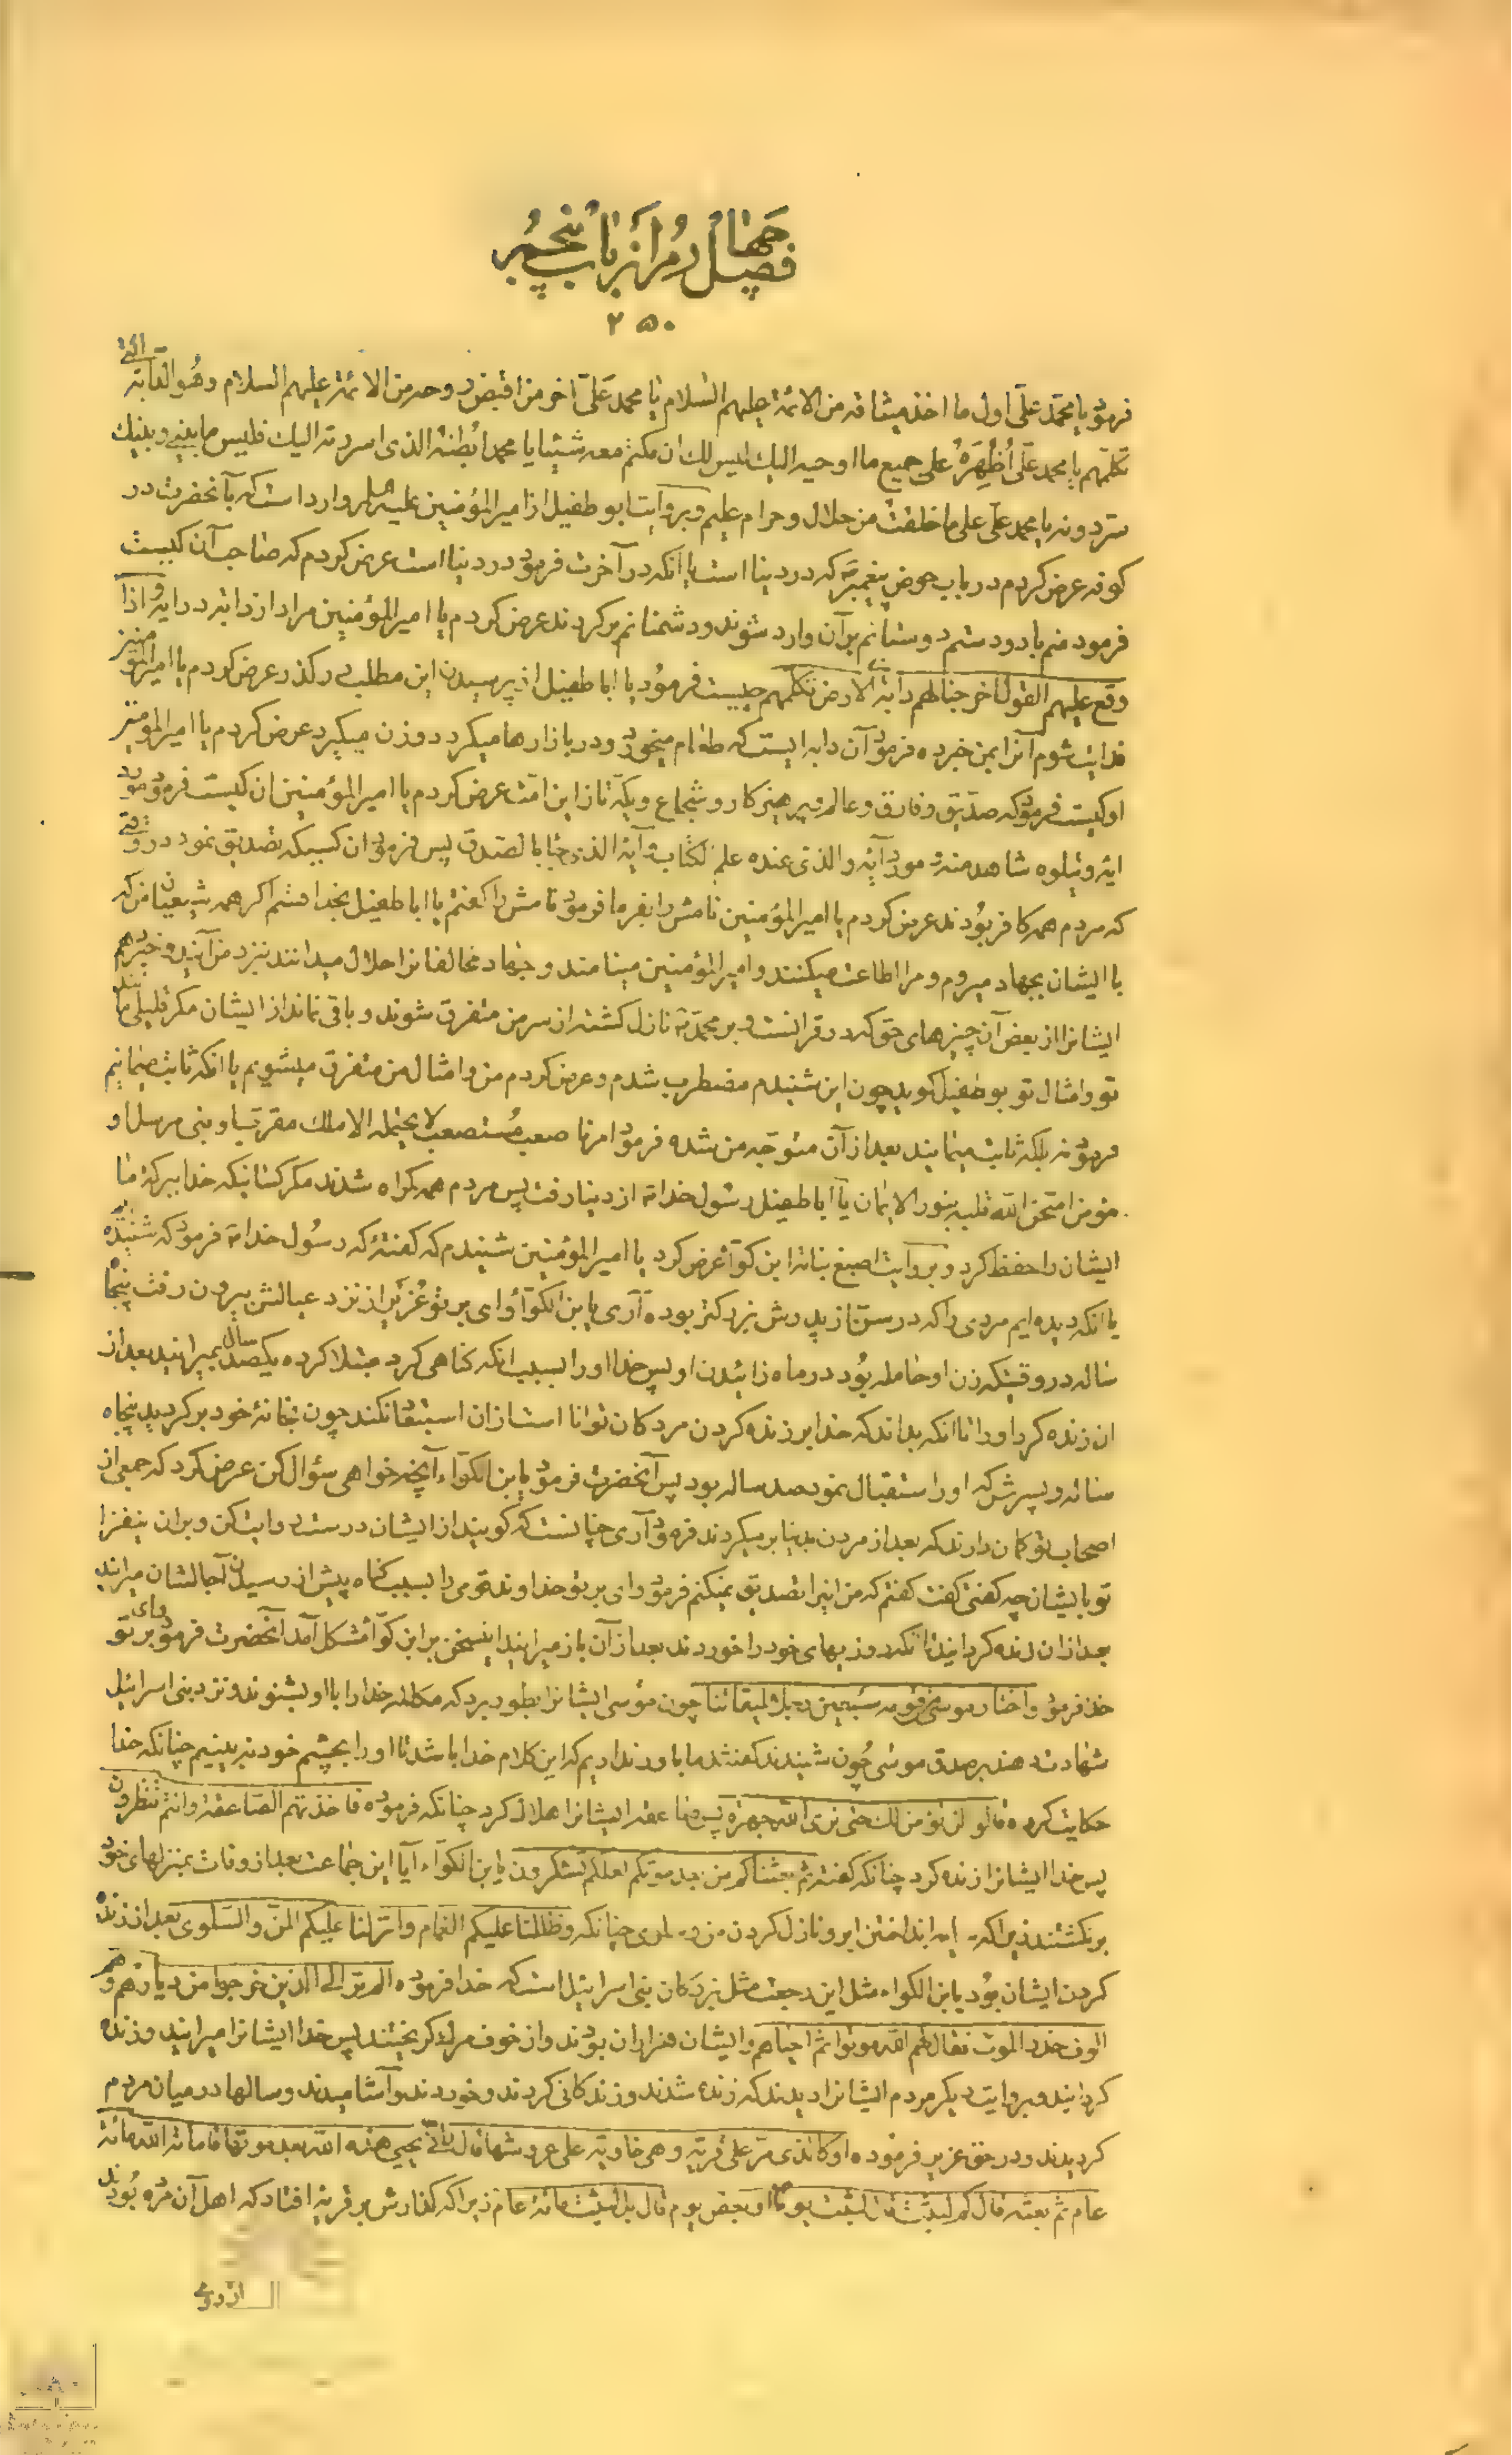 فصل چهارم از باب پنجم
۲۵۰
فرمود یا محمد علی اول ما اخذ میثاقه من الائمة علیهم السلام یا محمد علی آخر من اقبض روحه من الائمة علیهم السلام و هو الدابة التی
تکلمهم یا محمد علی اُظهِرَهُ علی جمیع ما اوحیه الیک لیس لک ان تکتم معه شیئا یا محمد اُبطنه الذی اسررته الیک فلیس ما بینی و بینک
سر دونه یا محمد علی علی ما خلقت من حلال و حرام علیم و بروایت ابو طفیل از امیرالمؤمنین علیه السلام وارد است که بآنحضرت در
کوفه عرض کردم در باب حوض پیغمبر که در دنیا است یا آنکه در آخرت فرمود در دنیا است عرض کردم که صاحب آن کیست
فرمود منم باد و دستم دوستانم بر آن وارد شوند و دشمنانم برگردند عرض کردم یا امیرالمؤمنین مراد از دابه در آیه و اذا
وقع علیهم القول اخرجنا لهم دابة من الارض تکلمهم چیست فرمود یا ابا طفیل از پرسیدن این مطلب در گذر عرض کردم یا امیرالمؤمنین
فدایت شوم آنرا بمن خبر ده فرمود آن دابه ایست که طعام میخورد و در بازارها میگردد و زن میگیرد عرض کردم یا امیرالمؤمنین
او کیست فرمود که صدیق و فارق و عالم و پرهیزکار و شجاع و یکه تاز این امت عرض کردم یا امیرالمؤمنین ان کیست فرمود مورد
ایه و یتلوه شاهد منه و مورد آیه و الذی عنده علم الکتاب و آیة الذی جاء بالصدق پس فرمود ان کسیکه تصدیق نمود در وقتی
که مردم همه کافر بودند عرض کردم یا امیرالمؤمنین نامش را بفرما فرمود نامش را گفتم یا ابا طفیل بخدا قسم اگر همه شیعیان من که
با ایشان بجهاد میروم و مرا اطاعت میکنند و امیرالمؤمنین مینامند و جهاد مخالفانرا حلال میدانند نزد من آیند و خبر دهم
ایشانرا از بعض آن چیزهای حق که در قرانست و بر محمد نازل گشته از سر من متفرق شوند و باقی نماند از ایشان مگر قلیلی مانند
تو و امثال تو بو طفیل گوید چون این شنیدم مضطرب شدم و عرض کردم من و امثال من متفرق میشویم یا انکه ثابت میمانیم
فرمود نه بلکه ثابت میمانید بعد از آن متوجه من شده فرمود امر ما صعب مُستصعب لا یحتمله الا ملک مقرب او نبی مرسل او
مؤمن امتحن الله قلبه بنور الایمان یا ابا طفیل رسول خدا از دنیا رفت پس مردم همه گمراه شدند مگر کسانیکه خدا ببرکت ما
ایشان را حفظ کرد و بروایت اصبغ نباته ابن کوّا عرض کرد یا امیرالمؤمنین شنیدم که گفتهٔ که رسول خدا فرمود که شنیده ایم
یا انکه دیده ایم مردی را که در سن از پدرش بزرگتر بوده آری یا بن الکوآء وای بر تو عُزَیر از نزد عیالش بیرون رفت پنجاه
ساله در وقتیکه زن او حامله بود در ماه زائیدن او پس خدا او را بسبب انکه گناهی کرد مبتلا کرده یکصد سال بمیرانید بعد از
ان زنده کرد او را تا انکه بداند که خدا بر زنده کردن مردگان توانا است از ان استبعاد نکند چون بخانهٔ خود برگردید پنجاه
ساله و پسرش که او را استقبال نمود صد ساله بود پس آنحضرت فرمود یا بن الکوّآء آنچه خواهی سؤال کن عرض کرد که جمعی از
اصحاب تو گمان دارند که بعد از مردن بدنیا برمیگردند فرمود آری چنانست که گویند از ایشان درست روایت کن و بر ان بیفزا
تو بایشان چه گفتی گفت گفتم که من اینرا تصدیق نمیکنم فرمود وای بر تو خداوند قومی را بسبب گناه پیش از رسیدن آجالشان میراند
بعد از ان زنده گردانید تا انکه روزیهای خود را خوردند بعد از آن باز میرانید اینسخن بر ابن کوّا مشکل آمد آنحضرت فرمود وای بر تو
خدا فرمود و اختار موسی قومه سبعین رجلا لمیقاتنا چون موسی ایشانرا بطور برد که مکالمه خدا را با او بشنوند و نزد بنی اسرائیل
شهادت دهند بر صدق موسی چون شنیدند گفتند ما باور نداریم که این کلام خدا باشد تا او را بچشم خود نه بینیم چنانکه خدا
حکایت کرده قالوا لن نؤمن لک حتی نری الله جهرة پس صاعقه ایشانرا هلاک کرد چنانکه فرموده فاخذتهم الصاعقة و انتم تنظرون
پس خدا ایشانرا زنده کرد چنانکه گفته ثم بعثناکم من بعد موتکم لعلکم تشکرون یا بن الکوّآء آیا این جماعت بعد از وفات بمنزلهای خود
برنگشتند زیرا که انداختن ابر و نازل کردن من و سلوی چنانکه و ظللنا علیکم الغمام و انزلنا علیکم المن و السلوی بعد از زنده
کردن ایشان بود یا بن الکواء مثل این رجعت مثل بزرگان بنی اسرائیل است که خدا فرموده الم تر الی الذین خرجوا من دیارهم و هم
الوف حذر الموت فقال لهم الله موتوا ثم احیاهم و ایشان هزاران بودند و از خوف مرگ گریختند پس خدا ایشانرا میرانید و زنده
گردانید و بروایت دیگر مردم ایشانرا دیدند که زنده شدند و زندگانی کردند و خوردند و آشامیدند و سالها در میان مردم
گردیدند و در حق عزیر فرموده او کالذی مر علی قریة و هی خاویة علی عروشها قال انی یحیی هذه الله بعد موتها فاماته الله مائة
عام ثم بعثه قال کم لبثت قال لبثت یوما او بعض یوم قال بل لبثت مائة عام زیرا که گذارش بر قریه افتاد که اهل آن مرده بودند
از روی